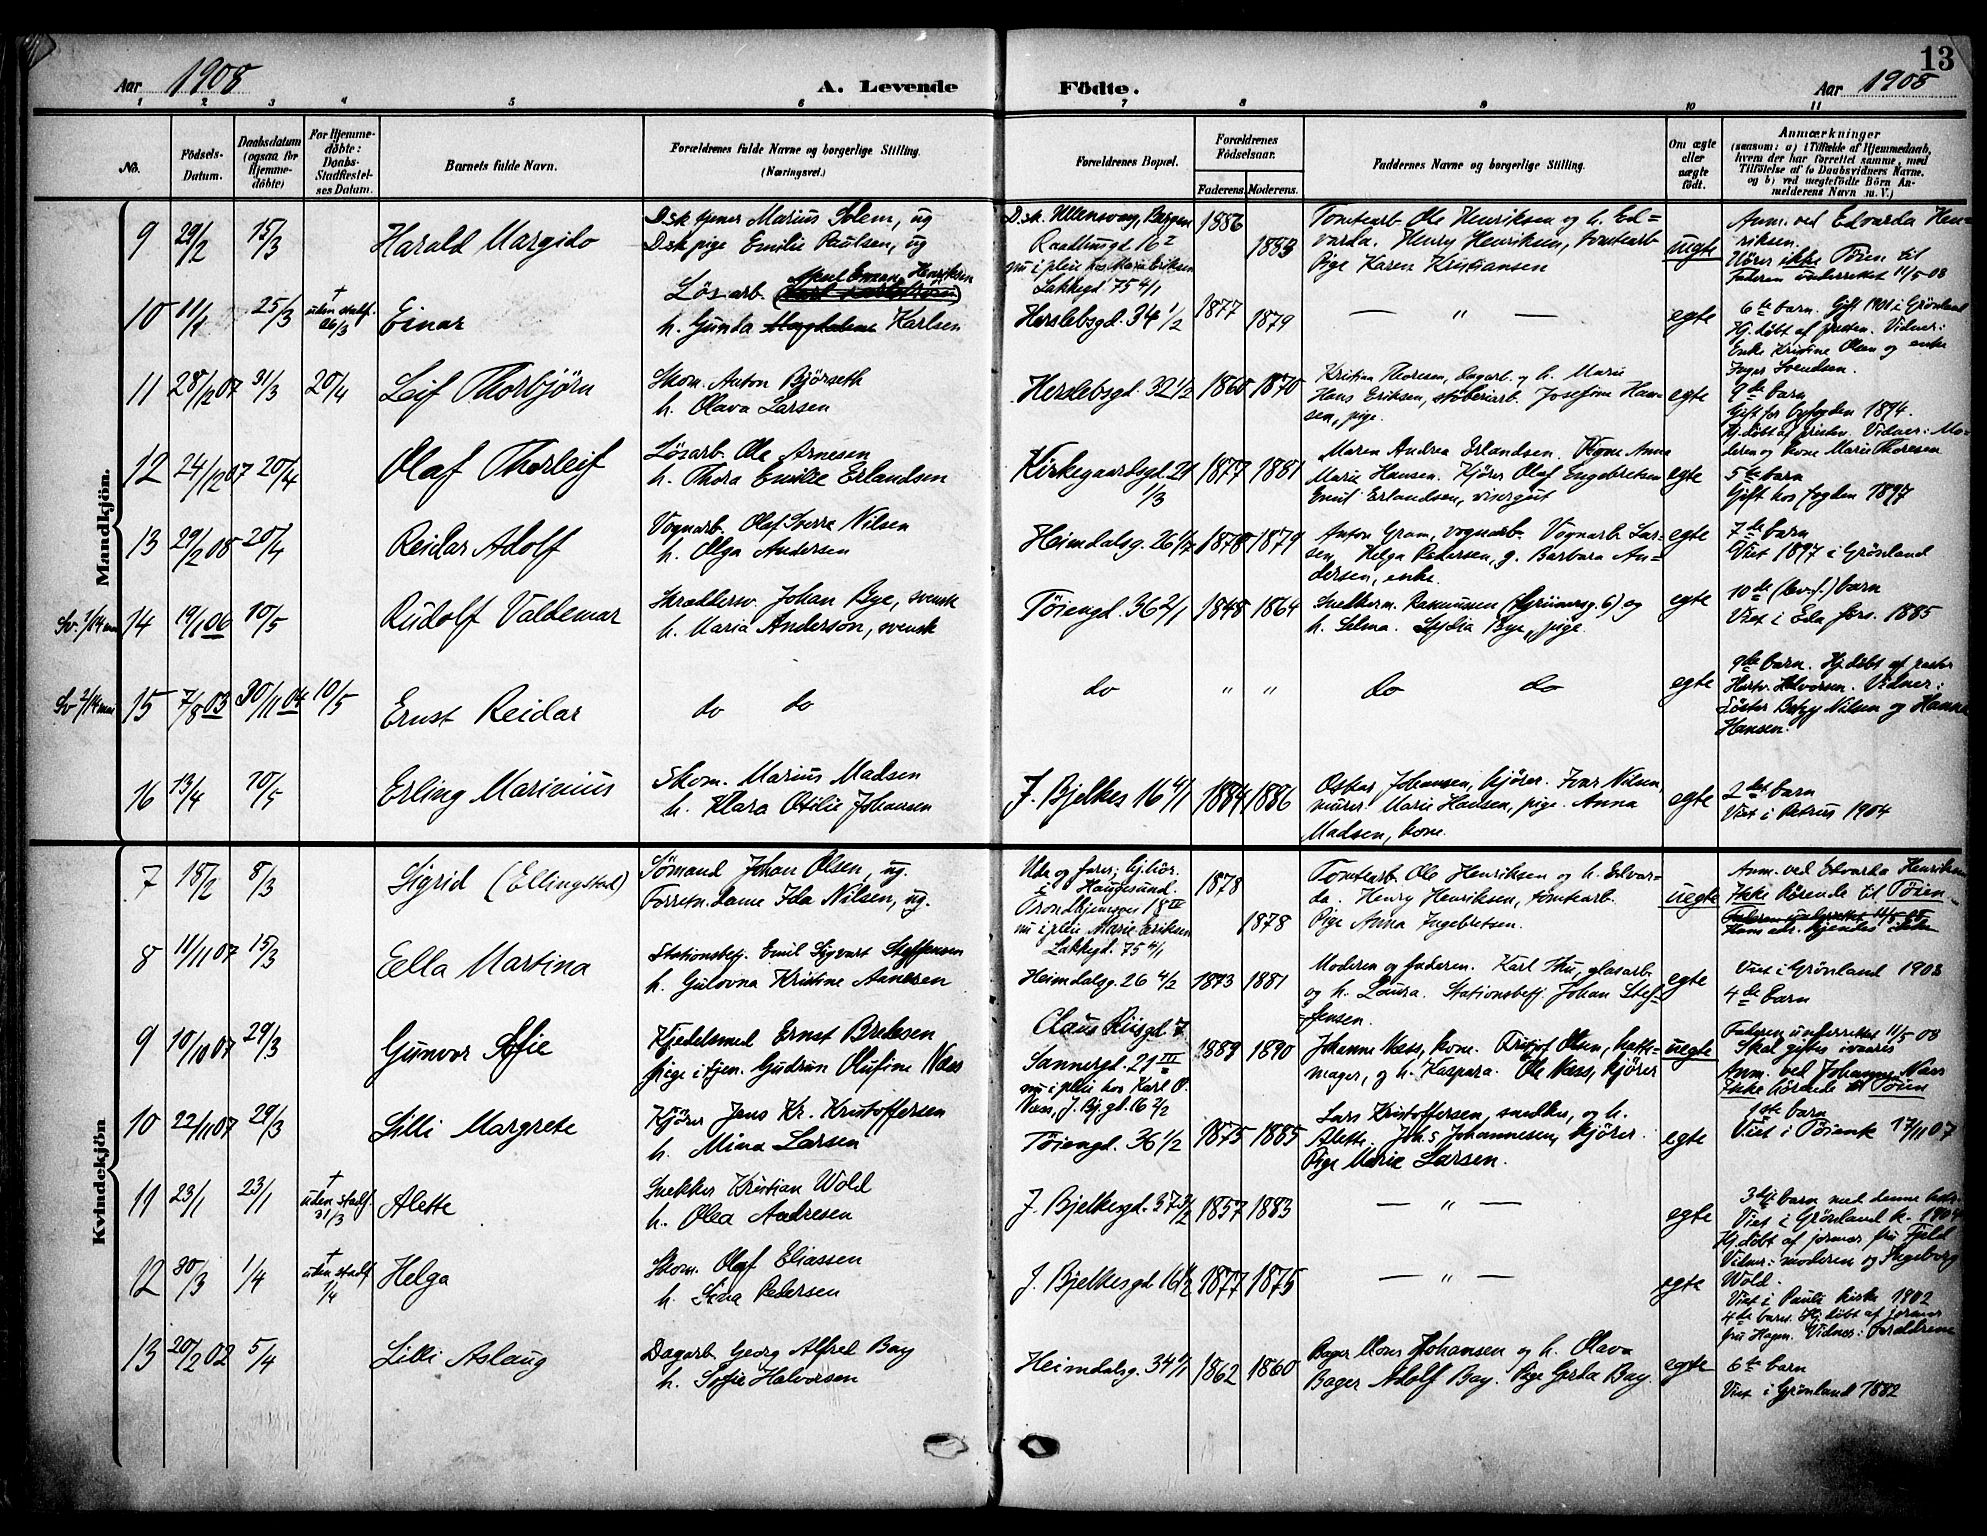 13
Aar 1908
A. Levende
Fødte.
Aar 1908
1 2 3 4 5 6 7 8 9 10 11
No.
Fødsels-Datum.
Daabsdatum (ogsaa for Hjemme-døbte)
For Hjemme-døbte: Daabs-Stadfæstel-ses Datum.
Barnets fulde Navn.
Forældrenes fulde Navne og borgerlige Stilling. (Næringsvei.)
Forældrenes Bopæl.
Forældrenes Fødselsaar.
Faderens. Moderens.
Faddernes Navne og borgerlige Stilling.
Om ægte eller uægte født.
Anmærkninger
(saasom: a) i Tilfælde af Hjemmedaab, hvem der har forrettet samme, med Tilføielse af to Daabsvidners Navne, og b) ved uægtefødte Børn An-melderens Navn m. V.)
Mandkjøn.
9 29/2 15/3 Harald Margido
D.sk. tjener Marius Solem, ug
D.sk. pige Emilie Paulsen, ug
D.sk. Ullensvang, Bergen
nu i pleie hos Marie Eriksen
Lakkegd. 75 4/1
1886 1883
Tomtearb. Ole Henriksen og h. Ed=
varda. Henry Henriksen, tomtearb
Pige Karen Kristiansen
uegte
Anm. ved Edvarda Hen=
riksen.
Hører ikke Tøien til
Faderen underrettet 11/5-08
10 11/1 25/3 + uden stadf. 26/3 Einar
Løsarb. Henriksen
h. Gunda Karlsen
Herslebsgd. 34 1/2 1877 1879
— „ —
egte
6te barn. Gift 1901 i Grønland
Hj.døbt af presten. Vidner:
Enke Kristine Olsen og enke
Inger Svendsen.
11 28/12 07 31/3 20/4 Leif Thorbjørn
Skom. Anton Bjørseth
h. Olava Larsen
Herslebsgd. 32 1/2 1860 1870
Kristian Thoresen, dagarb. og h. Marie
Hans Eriksen, støberiarb. Josefine Han=
sen, pige.
egte
9de barn
Gift for byfogden 1894.
Hj.døbt af presten. Vidner: Mo=
deren og kone Marie Thoresen
12 24/12 07 20/4 Olaf Thorleif
Løsarb. Ole Arnesen
h. Thora Emilie Erlandsen
Kirkegaardsgd. 21
1/3
1877 1881
Maren Andrea Erlandsen. Kone Anna
Marie Hansen. Kjører Olaf Engebretsen
Emil Erlandsen, visergut
egte
5te barn
Gift hos fogden 1897
13 29/2 08 20/4 Reidar Adolf
Vognarb. Olaf Sverre Nilsen
h. Olga Andersen
Heimdalsg. 26 1/7 1878 1879
Anton Gram, vognarb. Vognarb. Lar=
sen, Helga Pedersen, g. Barbara An=
dersen, enke.
egte
7de barn
Viet 1897 i Grønland
14 19/1 06 10/5 Rudolf Valdemar
Skræddersv. Johan Bye, svensk
h. Maria Anderson, svensk
Tøiengd. 36 2/1 1848 1864
Snedkerm. Rasmussen (Grünersg. 6) og
h. Selma. Lydia Bye, pige.
egte
10de (lev.f.) barn
Viet i Eda fors. 1885
15 7/8 03 30/11 04 10/5 Ernst Reidar
do do
do „ „ do do
egte
9de barn. Hj.døbt af pastor
Hartv. Halvorsen. Vidner:
Søster Betzy Nilsen og Hanna
Hansen.
16 13/4 10/5 Erling Marinius
Skom. Marius Madsen
h. Klara Otilie Johansen
J. Bjelkes 16 4/1 1884 1886
Oskar Johansen, kjører. Ivar Nilsen,
murer. Marie Hansen, pige. Anna
Madsen, kone.
egte
2det barn
Viet i Petrus 1904
Kvindekjøn
7 18/2 8/3 Sigrid (Ellingstad)
Sømand Johan Olsen, ug.
Forretn.dame Ida Nilsen, ug.
i Haugesund.
Trondhjemsvei 18 III
nu i pleie Marie Eriksen
Lakkegd. 75 4/1
1878 1878
Tomtearb. Ole Henriksen og h. Edvar=
da. Henry Henriksen, tomtearb.
Pige Anna Ingebretsen.
uegte
Anm. ved Edvarda Henriksen
Ikke hørende til Tøien.
Faderen underrettet 11/5-08
Hans adr. kjendes ikke
8 11/11 07 15/3 Ella Martina
Stationsbetj. Emil Sigvart Steffensen
h. Gulovna Kristine Aanesen
Heimdalsg. 26 4/2 1873 1881
Moderen og faderen. Karl Thu, glasarb.
og h. Laura. Stationsbetj. Johan Stef=
fensen.
egte
Viet i Grønland 1903
4de barn
9 10/10 07 29/3 Gunvor Sofie
Kjedelsmed Ernst Bredesen
pige i tjen. Gudrun Olufine Næss
Claus Riisgd. 7
Sannergd. 21 III
nu i pleie hos Karl O.
Næss, J. Bj.gd. 16 2/2
1889 1890
Johanne Næss, kone. Olsen, hatte=
mager, og h. Kaspara. Ole Næss, kjører
uegte
Faderen underrettet 11/5 08
Skal giftes
Anm. ved Johanne Næss
Ikke hørende til Tøien
10 22/11 07 29/3 Lilli Margrete
Kjører Jens Kr. Kristoffersen
h. Mina Larsen
Tøiengd. 36 1/2 1875 1885
Lars Kristoffersen, snedker, og h.
Alette. Johs Johannesen, kjører.
Pige Marie Larsen.
egte
1ste barn
Viet i Tøienk 17/11 07
11 23/1 23/1 + uden stadf. 31/3 Alette
Snekker Kristian Wold
h. Olea Andresen
J. Bjelkesgd. 37 3/2 1857 1883
— „ —
egte
3dje barn med denne
Viet i Grønland k. 1904
Hj.døbt af jormor fru Fjeld
Vidner: moderen og Ingeborg
Wold.
12 30/3 1/4 + uden stadf 1/4 Helga
Skom. Olaf Eliassen
h. Sina Pedersen
J. Bjelkesgd 16 1/2 1877 1875
— „ —
egte
Viet i Pauls kirke 1902
4de barn. Hj.døbt af jormor
fru Hagen. Vidner: Forældrene
13 20/2 02 5/4 Lilli Aslaug
Dagarb. Georg Alfred Bay
h. Sofie Halvorsen
Heimdalsg. 34 4/1 1862 1860
Bager Mons Johansen og h. Olava
Bager Adolf Bay. Pige Gerda Bay.
egte
6te barn
Viet i Grønland 1882